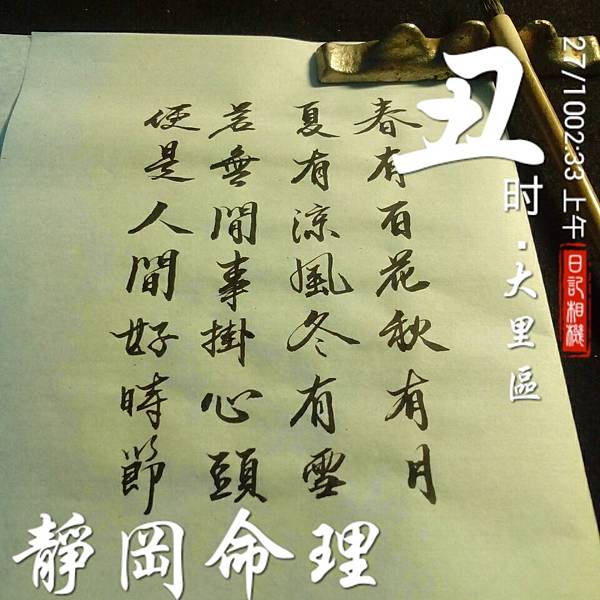 春有百花秋有月
夏有涼風冬有雪
若無閒事掛心頭
便是人間好時節
丑
时·大里區
27/10 02:33 上午
日記相機
靜岡命理